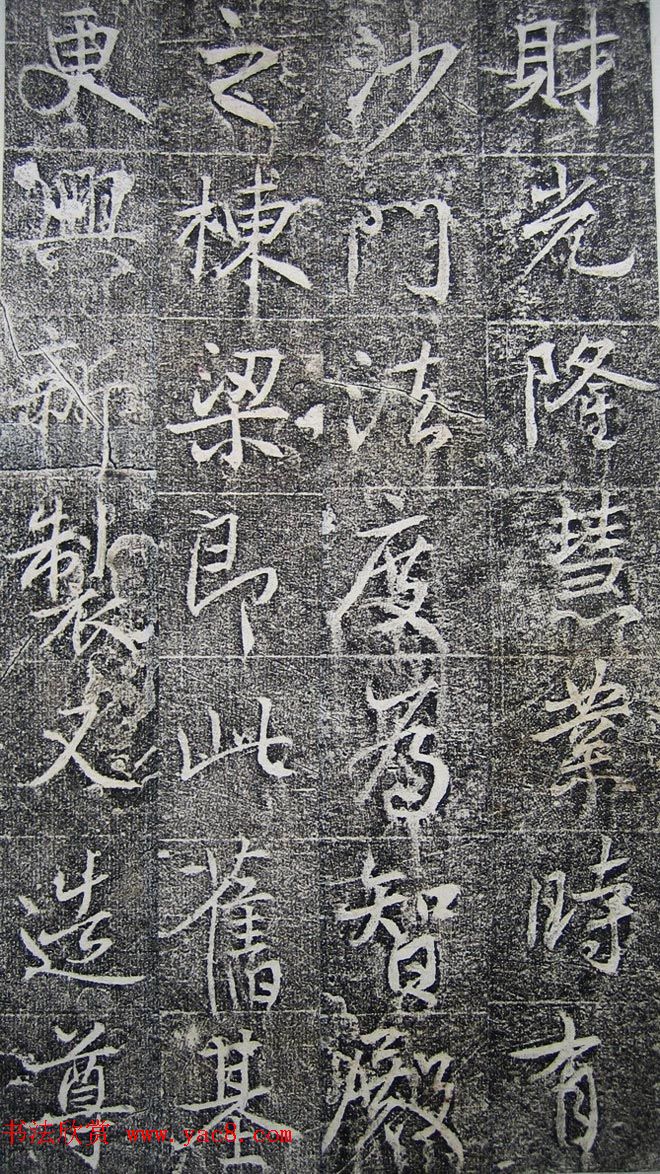 財光隆慧業時有
沙門法度為智殿
之棟梁即此舊基
更興新製又造尊
书法欣赏 www.yac8.com